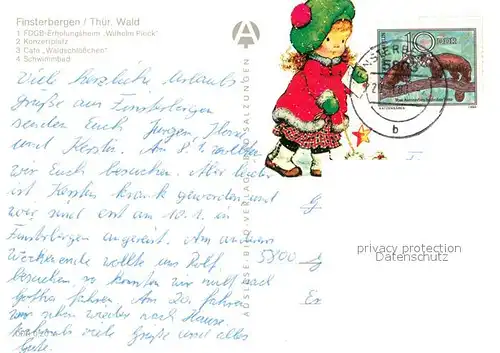 Finsterbergen / Thür. Wald
1 FDGB-Erholungsheim „Wilhelm Pieck"
2 Konzertplatz
3 Café „Waldschlößchen"
4 Schwimmbad
Viele herzliche Urlaubs-
grüße aus Finsterbergen
senden Euch Jürgen,
und Kerstin. Am 8.1. wollten
wir Euch besuchen. Aber leider
ist Kerstin krank geworden und
wir sind erst am 10.1. in
Finsterbergen angereist. Am anderen
Wochenende wollte uns Rolf
besuchen so konnten wir nicht nach
Gotha fahren. Am 20. fahren
wir schon wieder nach Hause.
viele Grüße und alles
Gute.
AUSLESE-BILD-VERLAG SALZUNGEN
10 DDR
b
G
5800 G
Er
privacy protection
Datenschutz